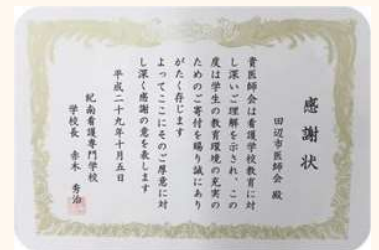 感謝状
田辺市医師会 殿
貴医師会は看護学校教育に対
し深いご理解を示され、この
度は学生の教育環境の充実の
ためのご寄付を賜り誠にあり
がたく存じます
よってここにそのご厚意に対
し深く感謝の意を表します
平成二十九年十月五日
紀南看護専門学校
学校長 赤木 秀治